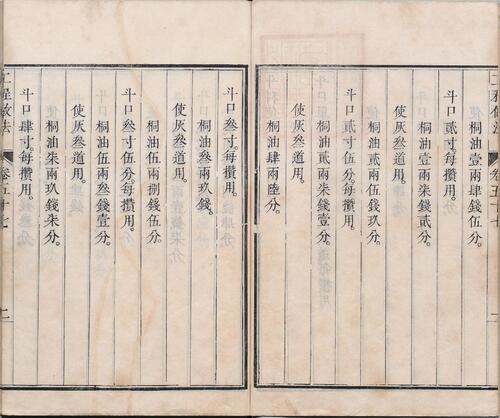 桐油壹兩伍錢伍分。
斗口貳寸。每攢用。
桐油壹兩柒錢貳分。
使灰叁道用。
桐油貳兩伍錢伍分。
斗口貳寸伍分。每攢用。
桐油貳兩柒錢壹分。
使灰叁道用。
桐油肆兩陸分。
斗口叁寸。每攢用。
桐油叁兩玖錢。
使灰叁道用。
桐油伍兩捌錢伍分。
斗口叁寸伍分。每攢用。
桐油伍兩叁錢壹分。
使灰叁道用。
桐油柒兩玖錢柒分。
斗口肆寸。每攢用。
工程做法 卷五十七 二